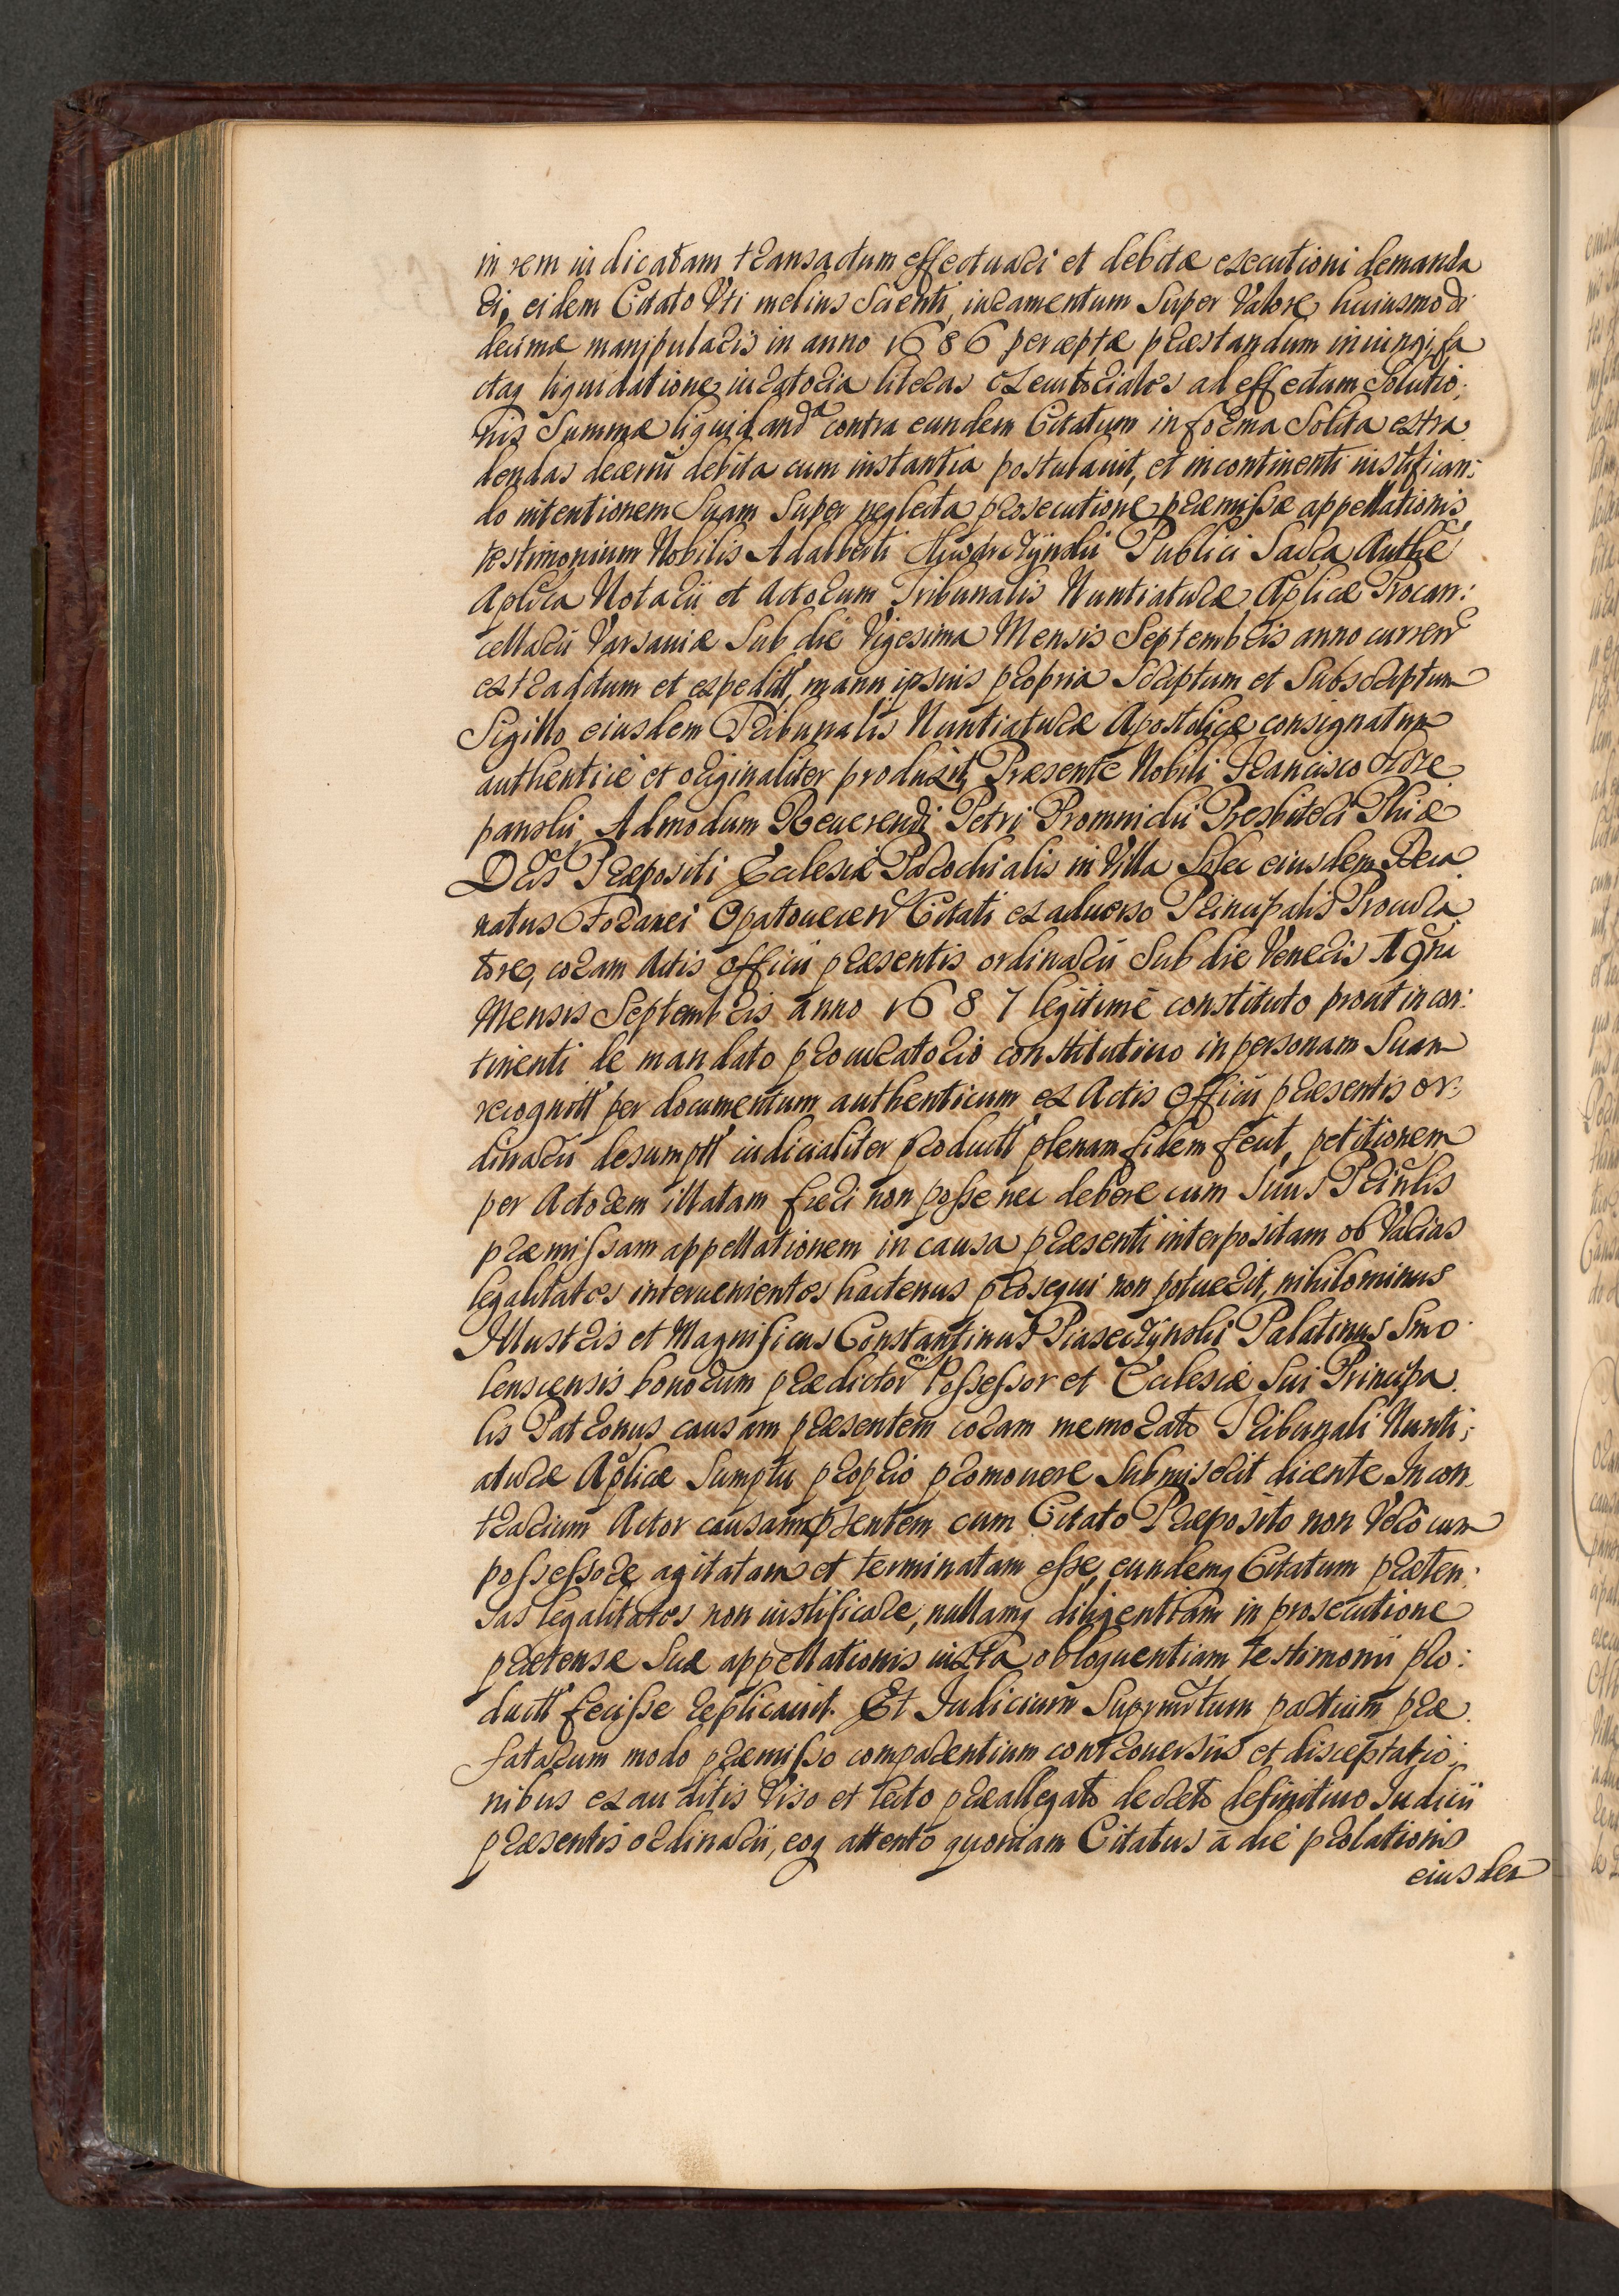 in rem iudicatam transactum effectuari et debitæ executioni demanda
ri, eidem Citato Uti melius Scienti, iuramentum Super Valore huiusmodi
decimæ manipularis in anno 1686 perceptæ præstandum iniungi, fa
ctaq liquidatione iuratoria literas executoriales ad effectum Solutio:
nis Summæ liquidand contra eundem Citatum in forma Solita extra
dendas decerni debita cum instantia postulauit, et incontinenti iustifican:
do intentionem Suam Super neglecta prosecutione præmissæ appellationis,
testimonium Nobilis Adalberti Publici Sacra Authe
Aplica Notarii et Actorum Tribunalis Nuntiaturæ Aplicæ Procan:
cellarii Varsauiæ Sub die Vigesima Mensis Septembris anno curren
extraditum et expeditt, manu ipsius propria Scriptum et Subscriptum
Sigillo eiusdem Tribunalis Nuntiaturæ Apostolicæ consignatum
authenticè et originaliter produxit, Præsente Nobili Francisco
panski, Admodum Reuerendi Petri Promnicki Presbiteri Phiæ
Dris Præpositi Ecclesiæ Parochialis in Villa Solec eiusdem Deca
natus Foranei Opatouecen Citati ex aduerso Principalis Procura
tore, coram Actis Officii præsentis ordinarii Sub die Veneris
Mensis Septembris anno 1687 legitimè constituto prout incon:
tinenti de mandato procuratorio constitutiuo in personam Suam
recognitt per documentum authenticum ex Actis Officii præsentis or:
dinarii desumptt iudicialiter productt plenam fidem fecit, petitionem
per Actorem illatam fieri non posse nec debere cum Suus Prinlis
præmissam appellationem in causa præsenti interpositam ob Varias
legalitates interuenientes hactenus prosequi non potuerit, nihilominus
Illustris et Magnificus Constantinus Piaseczynski Palatinus Smo
lenscensis bonorum prædictor Possessor et Ecclesiæ Sui Principa
lis Patronus causam præsentem coram memorato Tribunali Nunti:
aturæ Aplicæ Sumptu proprio promouere Submiserit dicente In con
trarium Actor causam psentem cum Citato Præposito non Verò cum
possessore agitatam et terminatam esse, eundemq Citatum præten:
sas legalitates non iustificare, nullamq diligentiam in prosecutione
prætensæ Suæ appellationis iuxta obloquentiam testimonii pro:
ductt fecisse replicauit. Et Iudicium Suprmtum partium præ
fatarum modo præmisso comparentium controuersiis et disceptatio:
nibus exauditis Viso et lecto præallegato decreto definitiuo Iudicii
præsentis ordinarii, eoq attento quoniam Citatus à die prolationis
eiusdem